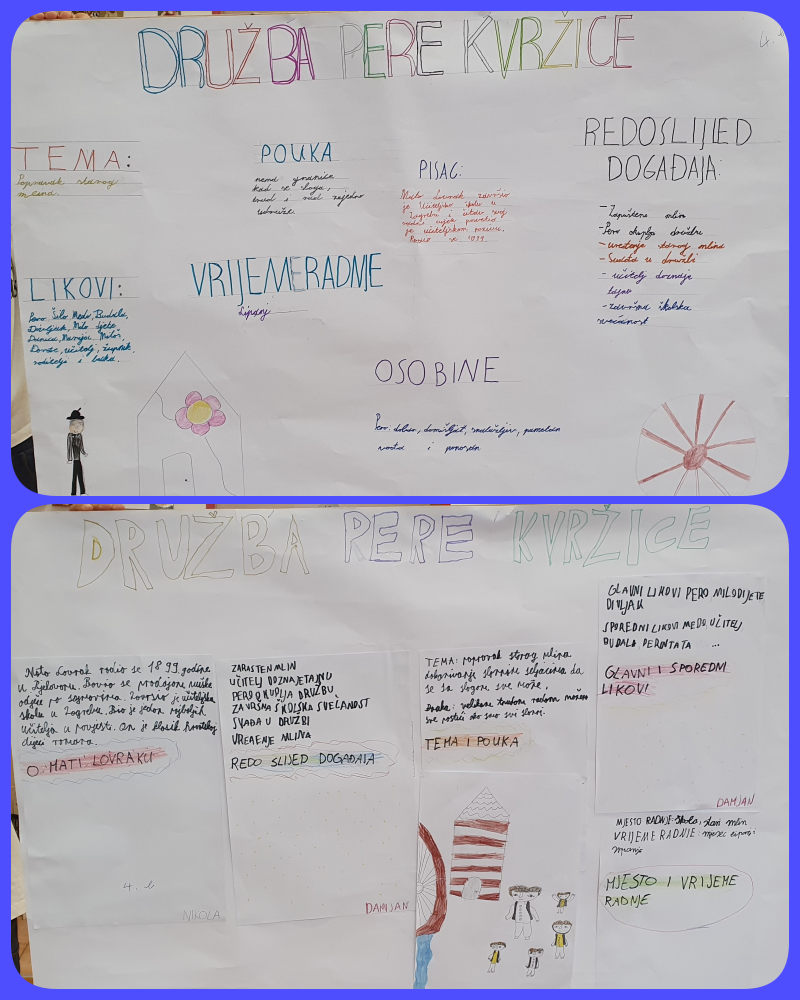 DRUŽBA PERE KVRŽICE
4. b
TEMA:
Popravak starog
mlina.
POUKA
nema granice
kad se sloga,
trud i rad zajedno
udruže.
PISAC:
Mato Lovrak završio
je Učiteljsku školu u
Zagrebu i
je učiteljskom pozivu.
REDOSLIJED
DOGAĐAJA:
- Zapušteni mlin
- Pero okuplja družbu
- uređenje starog mlina
- Svađa u družbi
- učitelj doznaje
tajnu
- završna školska
svečanost
LIKOVI:
Pero, Šilo, Medo, Budala,
Divljak, Milo dijete,
Danica, Marija, Miloš,
učitelj, župnik,
roditelji i baka.
VRIJEME RADNJE
Lipanj
OSOBINE
Pero: dobar, domišljat, snalažljiv, pametan
i ponosan
DRUŽBA PERE KVRŽICE
Mato Lovrak rodio se 1899. godine
u Bjelovaru. Bavio se prodajom muške
odjeće po sajmovima. Završio je učiteljsku
školu u Zagrebu. Bio je jedan najboljih
učitelja u povjesti. On je klasik hrvatskog
dječj romana.
O MATI LOVRAKU
4. b
NIKOLA
ZARASTEN MLIN
UČITELJ DOZNAJE TAJNU
PERO OKUPLJA DRUŽBU
ZAVRŠNA ŠKOLSKA SVEČANOST
SVAĐA U DRUŽBI
UREĐENJE MLINA
REDO SLIJED DOGAĐAJA
DAMJAN
TEMA: popravak starog mlina
dokazivanje seljacima da
se sa slogom sve može.
Pouka: velikom trudom radom možemo
sve postići ako smo svi složni.
TEMA I POUKA
GLAVNI LIKOVI PERO MILO DIJETE
DIVLJAK
SPOREDNI LIKOVI MEDO, UČITELJ
BUDALA PERINTATA ...
GLAVNI I SPOREDNI
LIKOVI
DAMJAN
MJESTO RADNJE: škola, stari mlin
VRIJEME RADNJE: mjesec lipanj i
MJESTO I VRIJEME
RADNJE